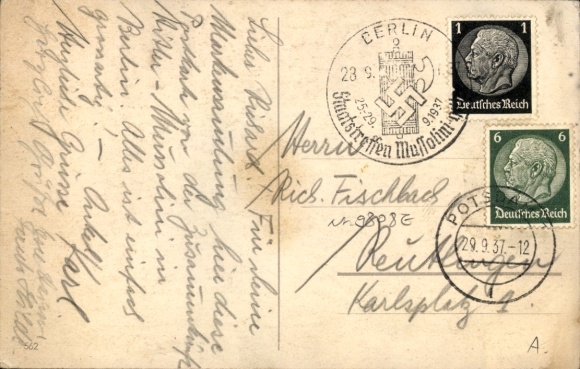 Lieber Richard! Für deine
Markensammlung hier diese
Postkarte von der Zusammenkunft
Hitler - Mussolini in
Berlin. Alles ist einfach
grossartig! - Onkel
Herzliche Grüsse Karl
562
BERLIN
28 9.
25.-29. 9.1937
Staatstreffen Mussolini
1 1
Deutsches Reich
6 6
Deutsches Reich
POTSDAM
29.9.37.-12
Herrn
Rich. Fischbach
Reutlingen
Karlsplatz 1.
A.